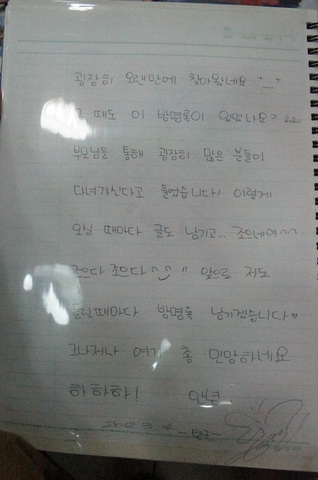 굉장히 오랜만에 찾아왔네요 ^_^
그 때도 이 방명록이 있었나요?
부모님을 통해 굉장히 많은 분들이
다녀가신다고 들었습니다! 이렇게
오실 때마다 글도 남기고... 조으네여~~
조으다 조으다 ^^ !! 앞으로 저도
올 때마다 방명록 남기겠습니다
그나저나 여기 좀 민망하네요
하하하!